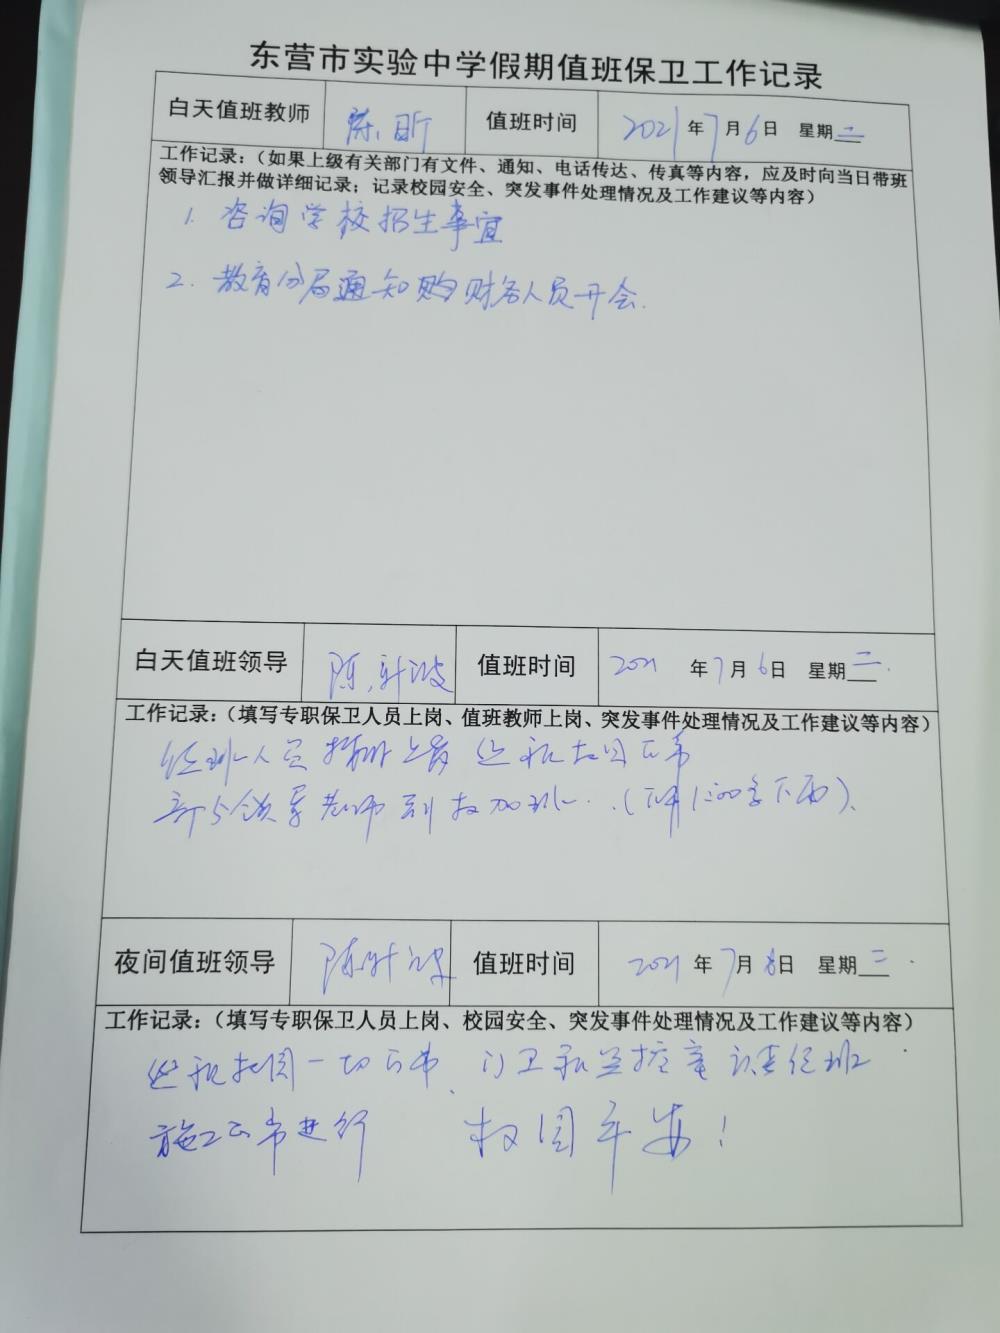 东营市实验中学假期值班保卫工作记录
白天值班教师 陈昕 值班时间 2021年7月6日 星期二
工作记录：（如果上级有关部门有文件、通知、电话传达、传真等内容，应及时向当日带班
领导汇报并做详细记录；记录校园安全、突发事件处理情况及工作建议等内容）
1. 咨询学校招生事宜
2. 教育分局通知 财务人员开会.
白天值班领导 陈 值班时间 2021年7月6日 星期二
工作记录：（填写专职保卫人员上岗、值班教师上岗、突发事件处理情况及工作建议等内容）
值班人员 上岗 巡视校园正常
领导老师到校加班.
夜间值班领导 陈 值班时间 2021年7月6日 星期二
工作记录：（填写专职保卫人员上岗、校园安全、突发事件处理情况及工作建议等内容）
巡视校园一切正常、门卫和监控室认真值班
施工正常进行 校园平安！